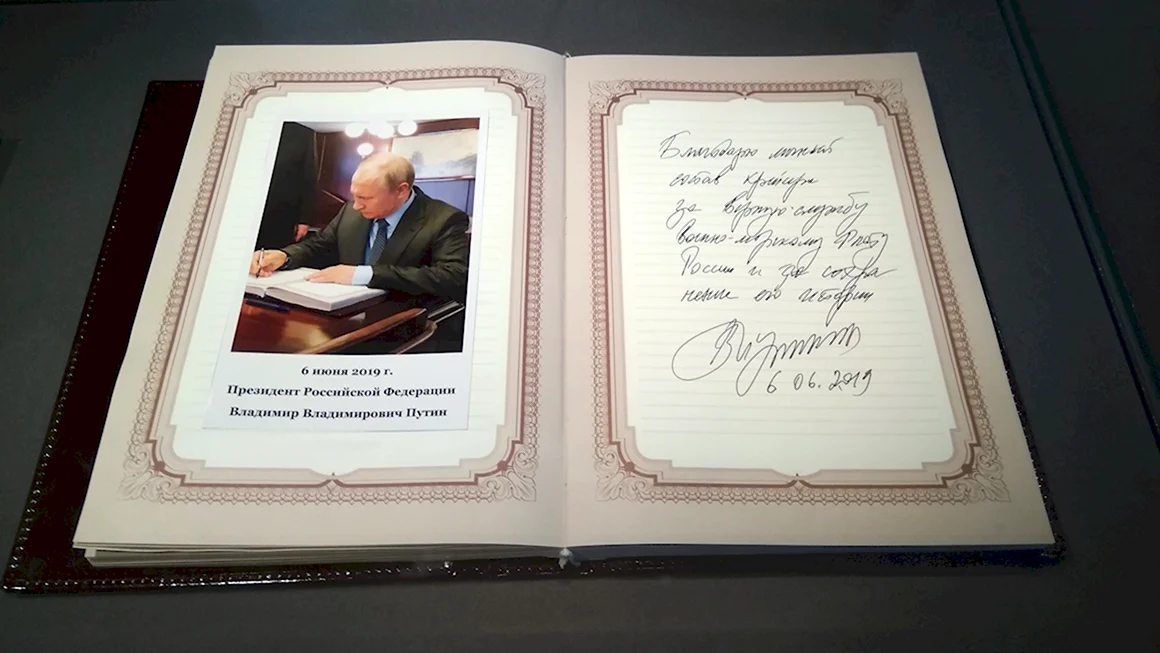 6 июня 2019 г.
Президент Российской Федерации
Владимир Владимирович Путин
Благодарю личный
состав крейсера
за верную службу
Военно-морскому Флоту
России и за сохра
нение его истории
6 06. 2019